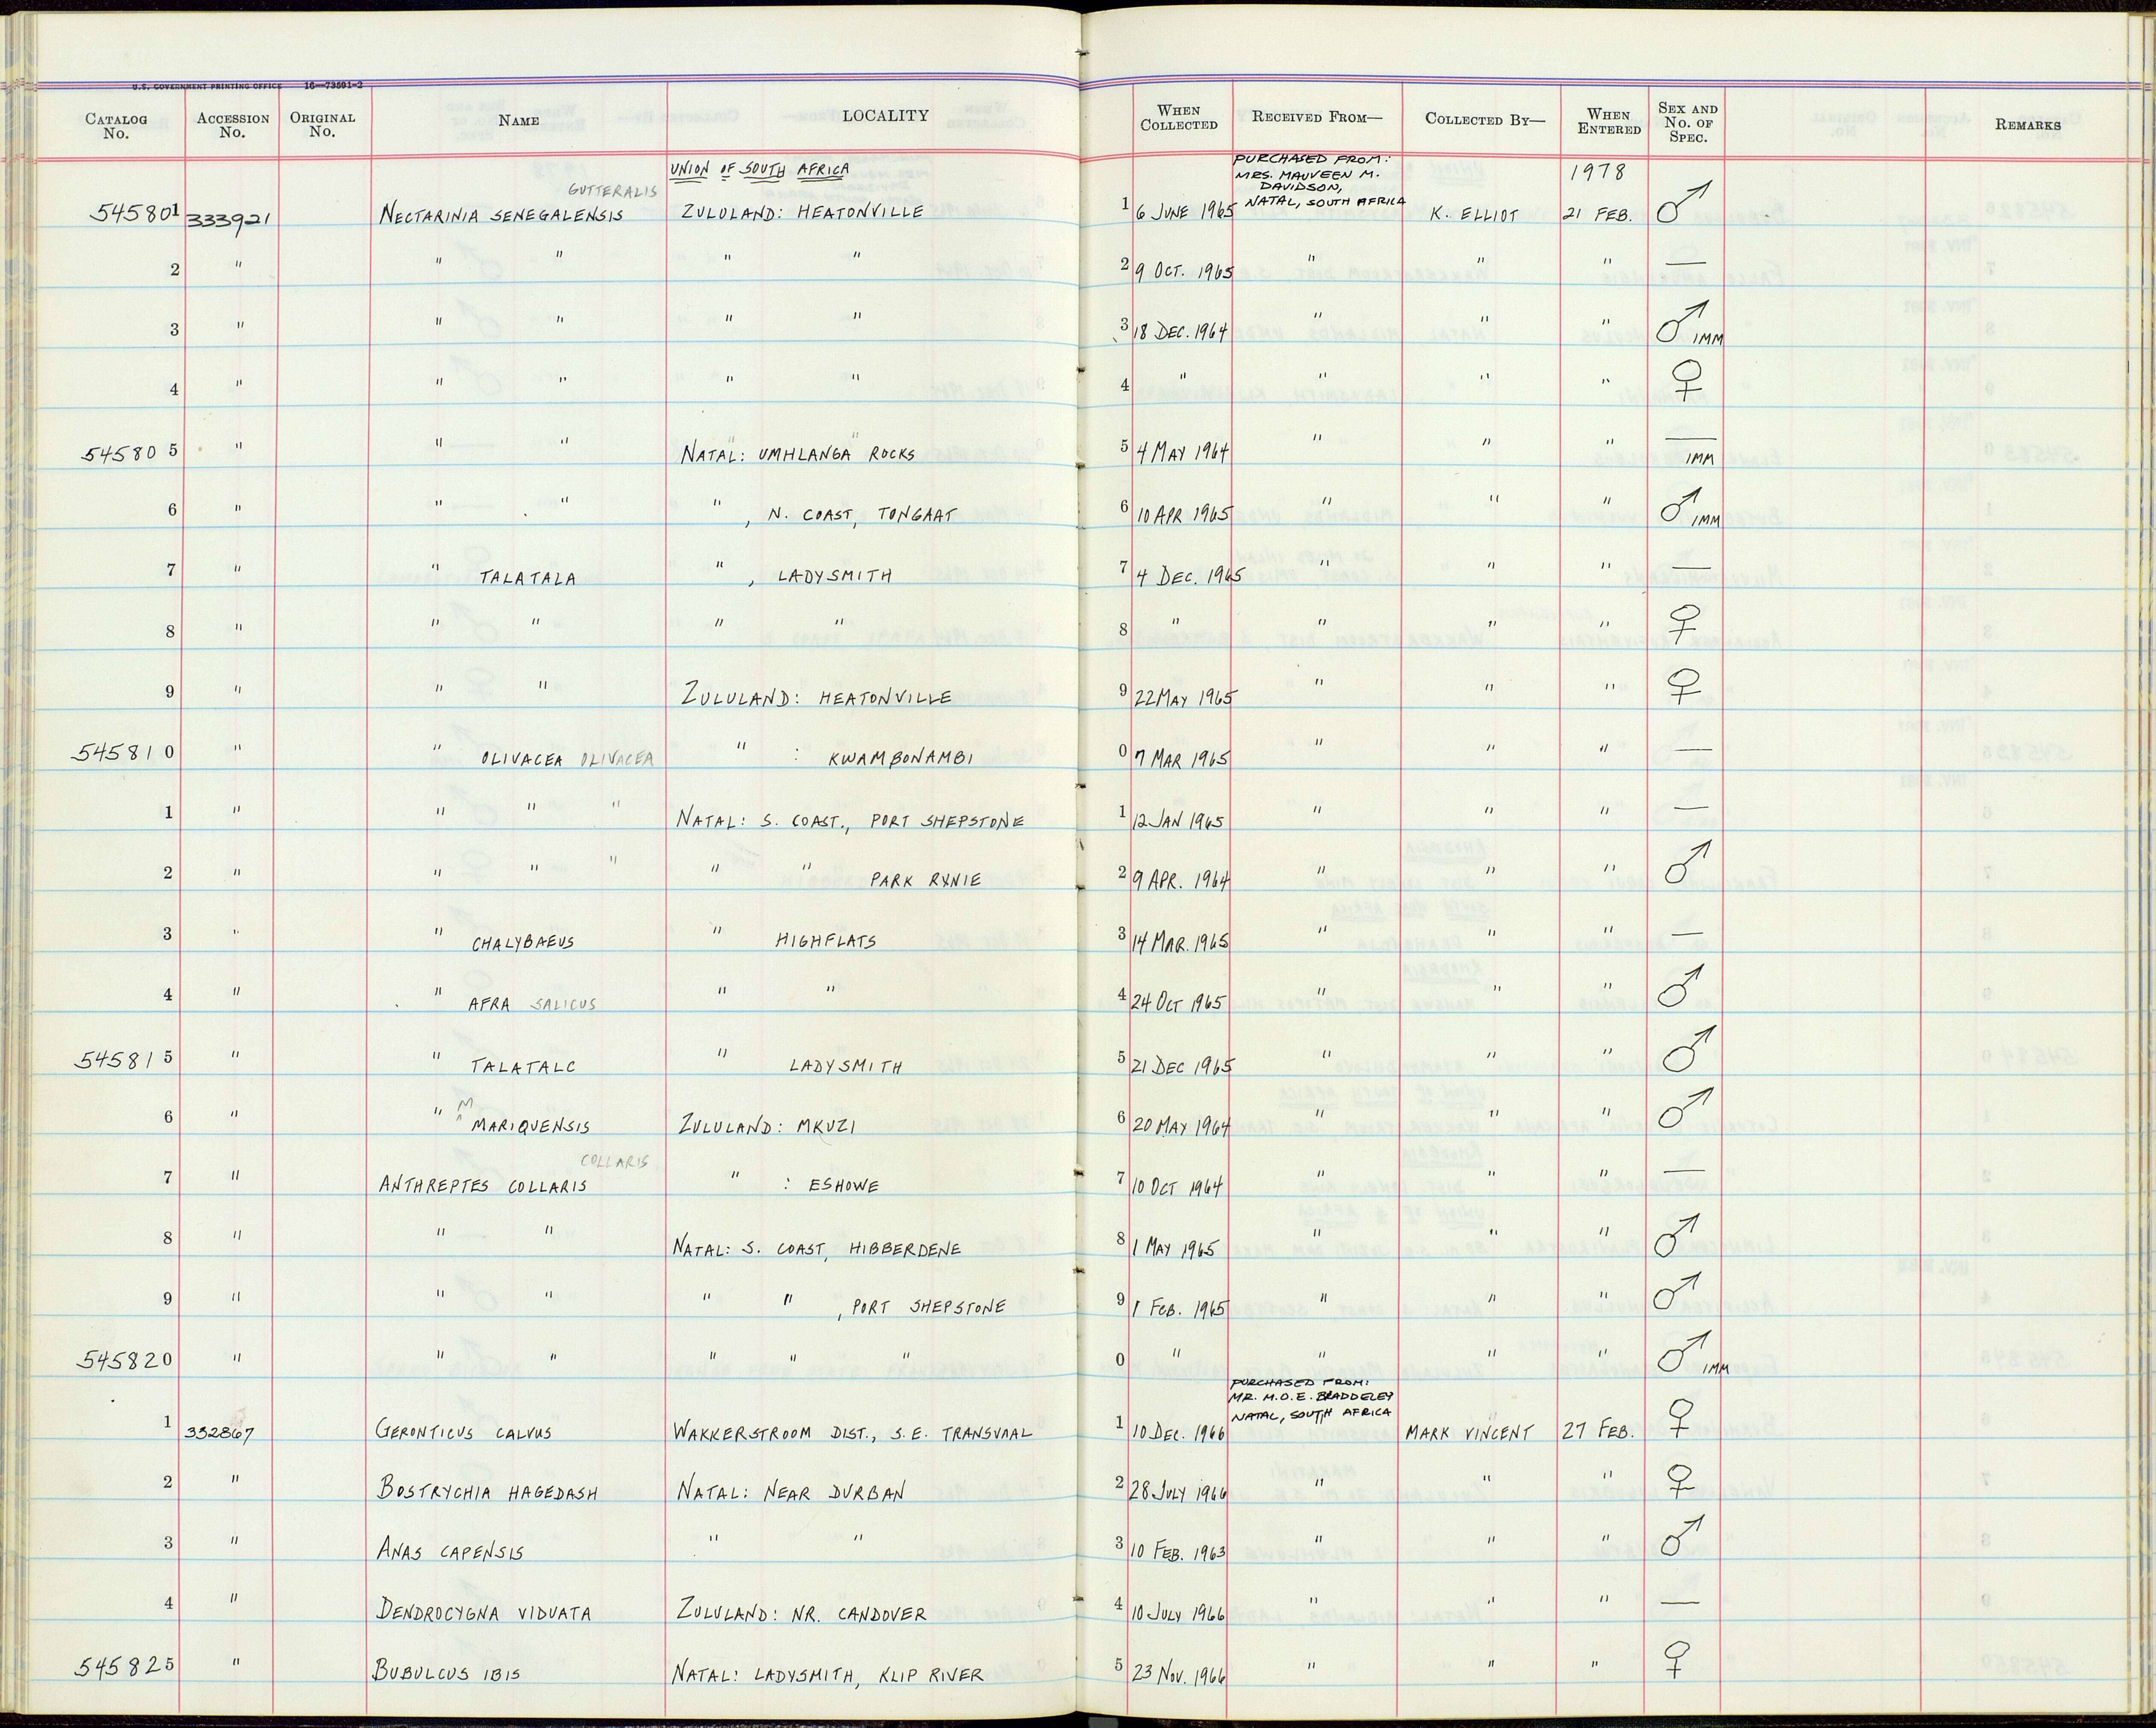 U.S. GOVERNMENT PRINTING OFFICE 16—73591-2
CATALOG No. ACCESSION No. ORIGINAL No. NAME LOCALITY WHEN COLLECTED RECEIVED FROM— COLLECTED BY— WHEN ENTERED SEX AND No. OF SPEC. REMARKS
UNION OF SOUTH AFRICA PURCHASED FROM: MRS. MAUVEEN M. DAVIDSON, NATAL, SOUTH AFRICA 1978
GUTTERALIS
545801 333921 NECTARINIA SENEGALENSIS ZULULAND: HEATONVILLE 1 6 JUNE 1965 K. ELLIOT 21 FEB. ♂
2 " " " " " 2 9 OCT. 1965 " " " —
3 " " " " " 3 18 DEC. 1964 " " " ♂ IMM
4 " " " " " 4 " " " " ♀
545805 " " " NATAL: UMHLANGA ROCKS 5 4 MAY 1964 " " " — IMM
6 " " " " , N. COAST, TONGAAT 6 10 APR 1965 " " " ♂ IMM
7 " " TALATALA " , LADYSMITH 7 4 DEC. 1965 " " " —
8 " " " " " 8 " " " " ♀
9 " " " ZULULAND: HEATONVILLE 9 22 MAY 1965 " " " ♀
545810 " " OLIVACEA OLIVACEA " : KWAMBONAMBI 0 7 MAR 1965 " " " —
1 " " " " NATAL: S. COAST., PORT SHEPSTONE 1 12 JAN 1965 " " " —
2 " " " " " " PARK RYNIE 2 9 APR. 1964 " " " ♂
3 " " CHALYBAEUS " HIGHFLATS 3 14 MAR. 1965 " " " —
4 " " AFRA SALICUS " " 4 24 OCT 1965 " " " ♂
545815 " " TALATALC " LADYSMITH 5 21 DEC 1965 " " " ♂
6 " " M MARIQUENSIS ZULULAND: MKUZI 6 20 MAY 1964 " " " ♂
COLLARIS
7 " ANTHREPTES COLLARIS " : ESHOWE 7 10 OCT 1964 " " " —
8 " " " NATAL: S. COAST, HIBBERDENE 8 1 MAY 1965 " " " ♂
9 " " " " " , PORT SHEPSTONE 9 1 FEB. 1965 " " " ♂
545820 " " " " " " 0 " " " " ♂ IMM
PURCHASED FROM: MR. M.O.E. BRADDELEY NATAL, SOUTH AFRICA
1 332867 GERONTICUS CALVUS WAKKERSTROOM DIST., S.E. TRANSVAAL 1 10 DEC. 1966 MARK VINCENT 27 FEB. ♀
2 " BOSTRYCHIA HAGEDASH NATAL: NEAR DURBAN 2 28 JULY 1966 " " " ♀
3 " ANAS CAPENSIS " " 3 10 FEB. 1963 " " " ♂
4 " DENDROCYGNA VIDUATA ZULULAND: NR. CANDOVER 4 10 JULY 1966 " " " —
545825 " BUBULCUS IBIS NATAL: LADYSMITH, KLIP RIVER 5 23 NOV. 1966 " " " ♀